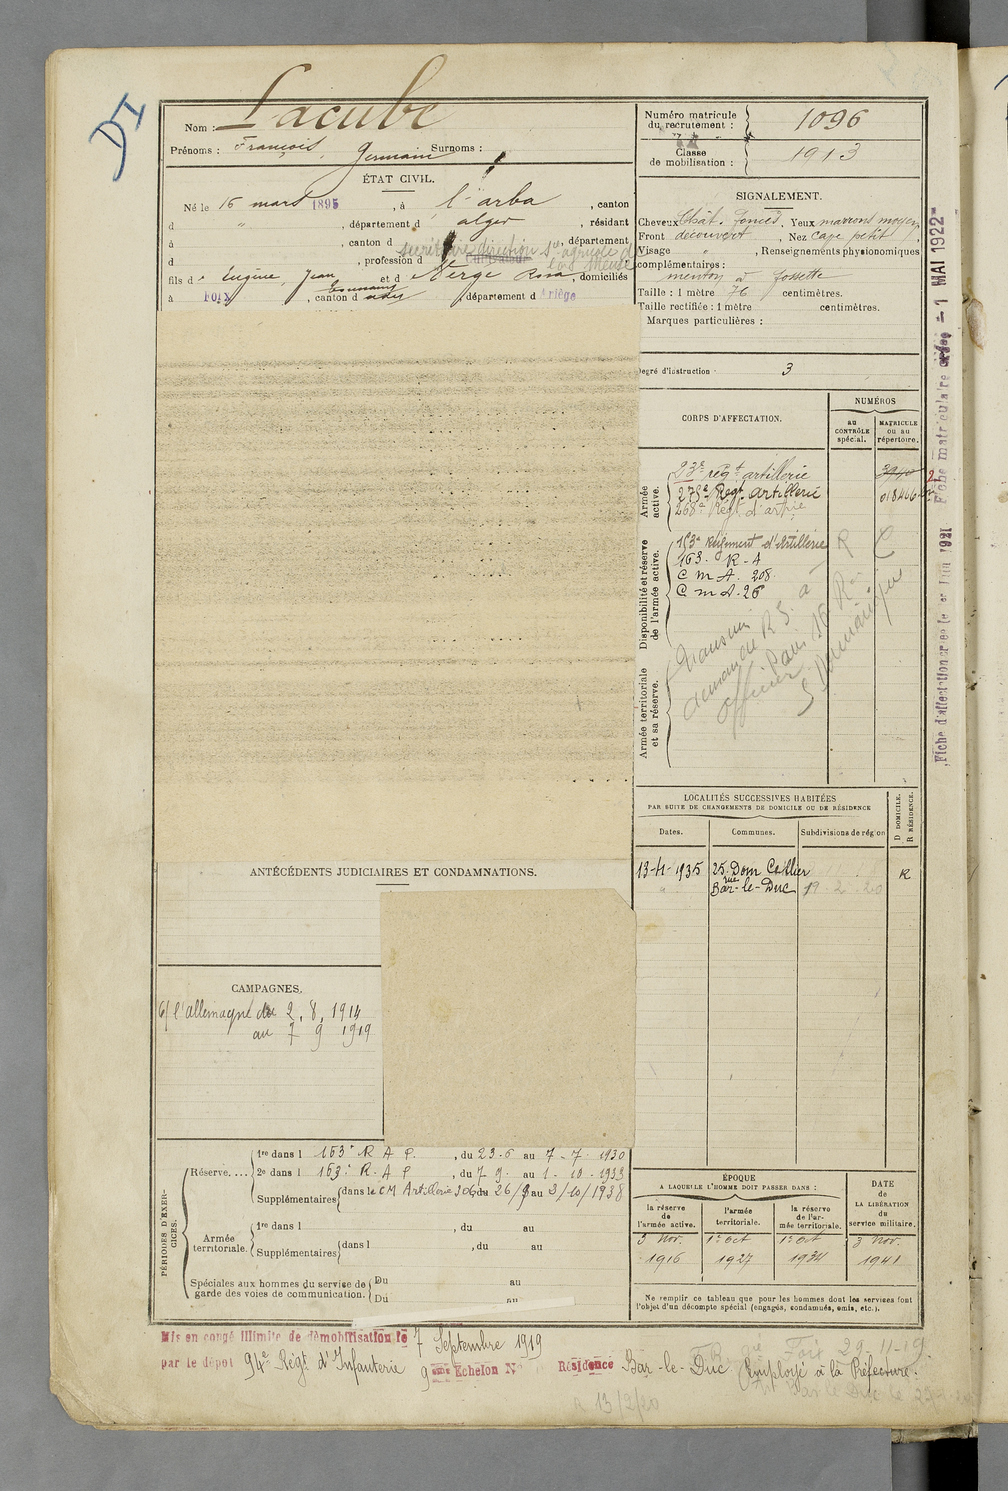 DI
Nom : Lacube
Prénoms : François, Germain Surnoms :
ÉTAT CIVIL.
Né le 16 mars 1895, à l'arba, canton
d " , département d alger, résidant
à , canton d , département
d , profession d secrétaire direction
fils d' Eugène, Jean et d Rosa, domiciliés
à Foix, canton d , département d ariège
Numéro matricule du recrutement : 1096
Classe de mobilisation : 1913
SIGNALEMENT.
Cheveux Chât. foncés, Yeux marrons moyen,
Front découvert, Nez cave petit,
Visage " , Renseignements physionomiques
complémentaires :
menton à fossette
Taille : 1 mètre 76 centimètres.
Taille rectifiée : 1 mètre centimètres.
Marques particulières :
Degré d'instruction 3
CORPS D'AFFECTATION.
NUMÉROS
au CONTRÔLE spécial.
MATRICULE ou au répertoire.
Armée active.
23e régt artillerie
275e Régt artillerie
268e Régt d'artie
Disponibilité et réserve de l'armée active.
163e Régiment d'Artillerie R
163. R-A
C m A. 208
C m A. 26
Armée territoriale et sa réserve.
Fiche d'affectation créée le 1er Juin 1921
Fiche matriculaire créée - 1 MAI 1922-
LOCALITÉS SUCCESSIVES HABITÉES
PAR SUITE DE CHANGEMENTS DE DOMICILE OU DE RÉSIDENCE
Dates.
Communes.
Subdivisions de région
D DOMICILE.
R RÉSIDENCE.
13-4-1935 25 rue Dom Cellier R
" Bar-le-Duc 19-2-20
ANTÉCÉDENTS JUDICIAIRES ET CONDAMNATIONS.
CAMPAGNES.
c/ l'allemagne du 2. 8. 1914
au 7 9 1919
PÉRIODES D'EXERCICES.
Réserve....
1re dans l 163e R A P. , du 23-6 au 7-7-1930
2e dans l 163e R. A P , du 7 9. au 1-10-1933
Supplémentaires dans le CM Artillerie 306 du 26/9 au 3/10/1938
Armée territoriale.
1re dans l , du au
Supplémentaires dans l , du au
Spéciales aux hommes du service de garde des voies de communication.
Du au
Du au
ÉPOQUE
A LAQUELLE L'HOMME DOIT PASSER DANS :
la réserve de l'armée active.
l'armée territoriale.
la réserve de l'armée territoriale.
DATE de LA LIBÉRATION du service militaire.
3 Nov. 1916
1er oct 1927
1er oct 1934
3 Nov. 1941
Ne remplir ce tableau que pour les hommes dont les services font
l'objet d'un décompte spécial (engagés, condamnés, omis, etc.).
Mis en congé illimité de démobilisation le 7 Septembre 1919
par le dépôt 94e Régt d'Infanterie 9ème Echelon N° Résidence Bar-le-Duc Employé à la Préfecture.
R 13/2/20